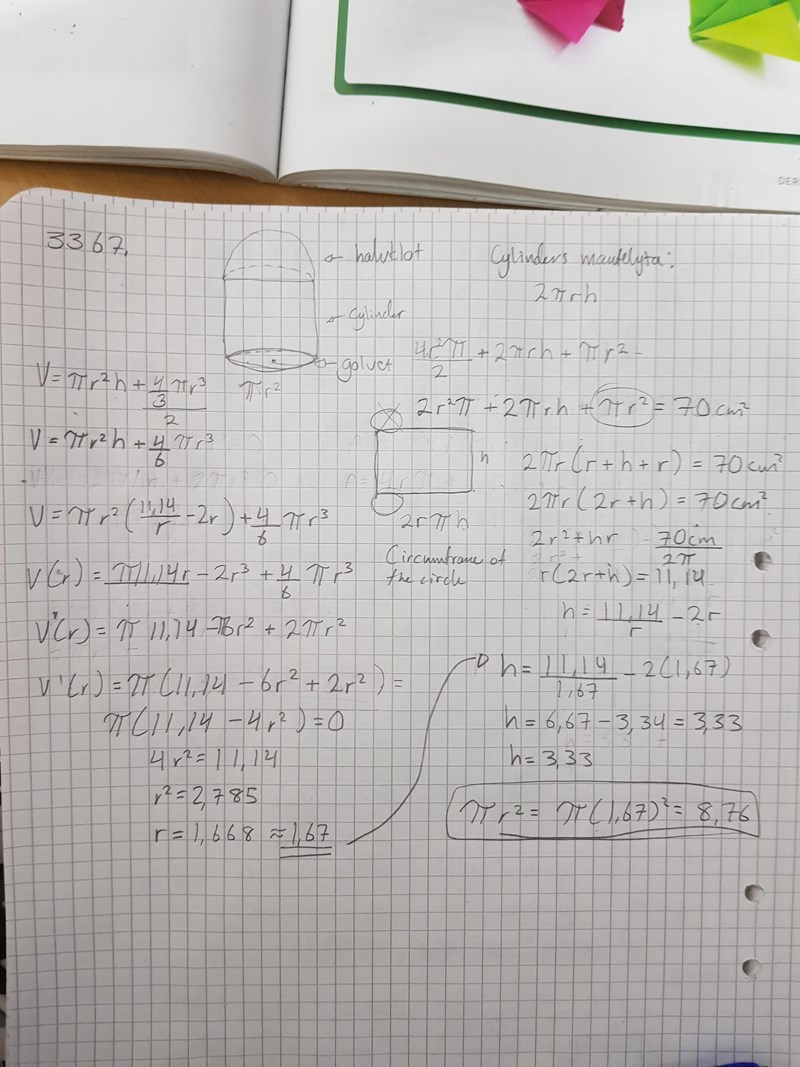 3367.
halvklot
cylinder
golvet
πr²
Cylinders mantelyta:
2πrh
4r²π/2 + 2πrh + πr² -
2r²π + 2πrh + πr² = 70 cm²
h
2rπh
Circumfrance of
the circle
2πr(r+h+r) = 70 cm²
2πr(2r+h) = 70 cm²
2r²+hr = 70cm/2π
r(2r+h) = 11,14
h = 11,14/r - 2r
V = πr²h + (4/3 πr³)/2
V = πr²h + 4/6 πr³
V = πr²(11,14/r - 2r) + 4/6 πr³
V(r) = π11,14r - 2r³ + 4/6 πr³
V'(r) = π 11,14 - 6r² + 2πr²
V'(r) = π(11,14 - 6r² + 2r²) =
π(11,14 - 4r²) = 0
4r² = 11,14
r² = 2,785
r = 1,668 ≈ 1,67
h = 11,14/1,67 - 2(1,67)
h = 6,67 - 3,34 = 3,33
h = 3,33
πr² = π(1,67)² = 8,76